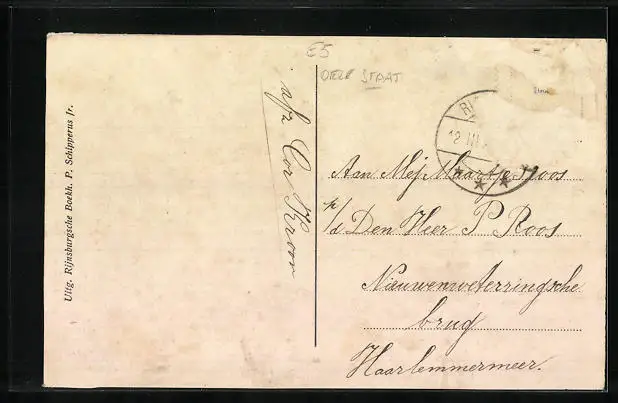 Uitg. Rijnsburgsche Boekh. P. Schipperus Jr.
afz Cor Kroon
E5
STAAT
12 III
Aan Mej Maartje Roos
p/d Den Heer P Roos
Nieuwenweterringsche
brug
Haarlemmermeer.